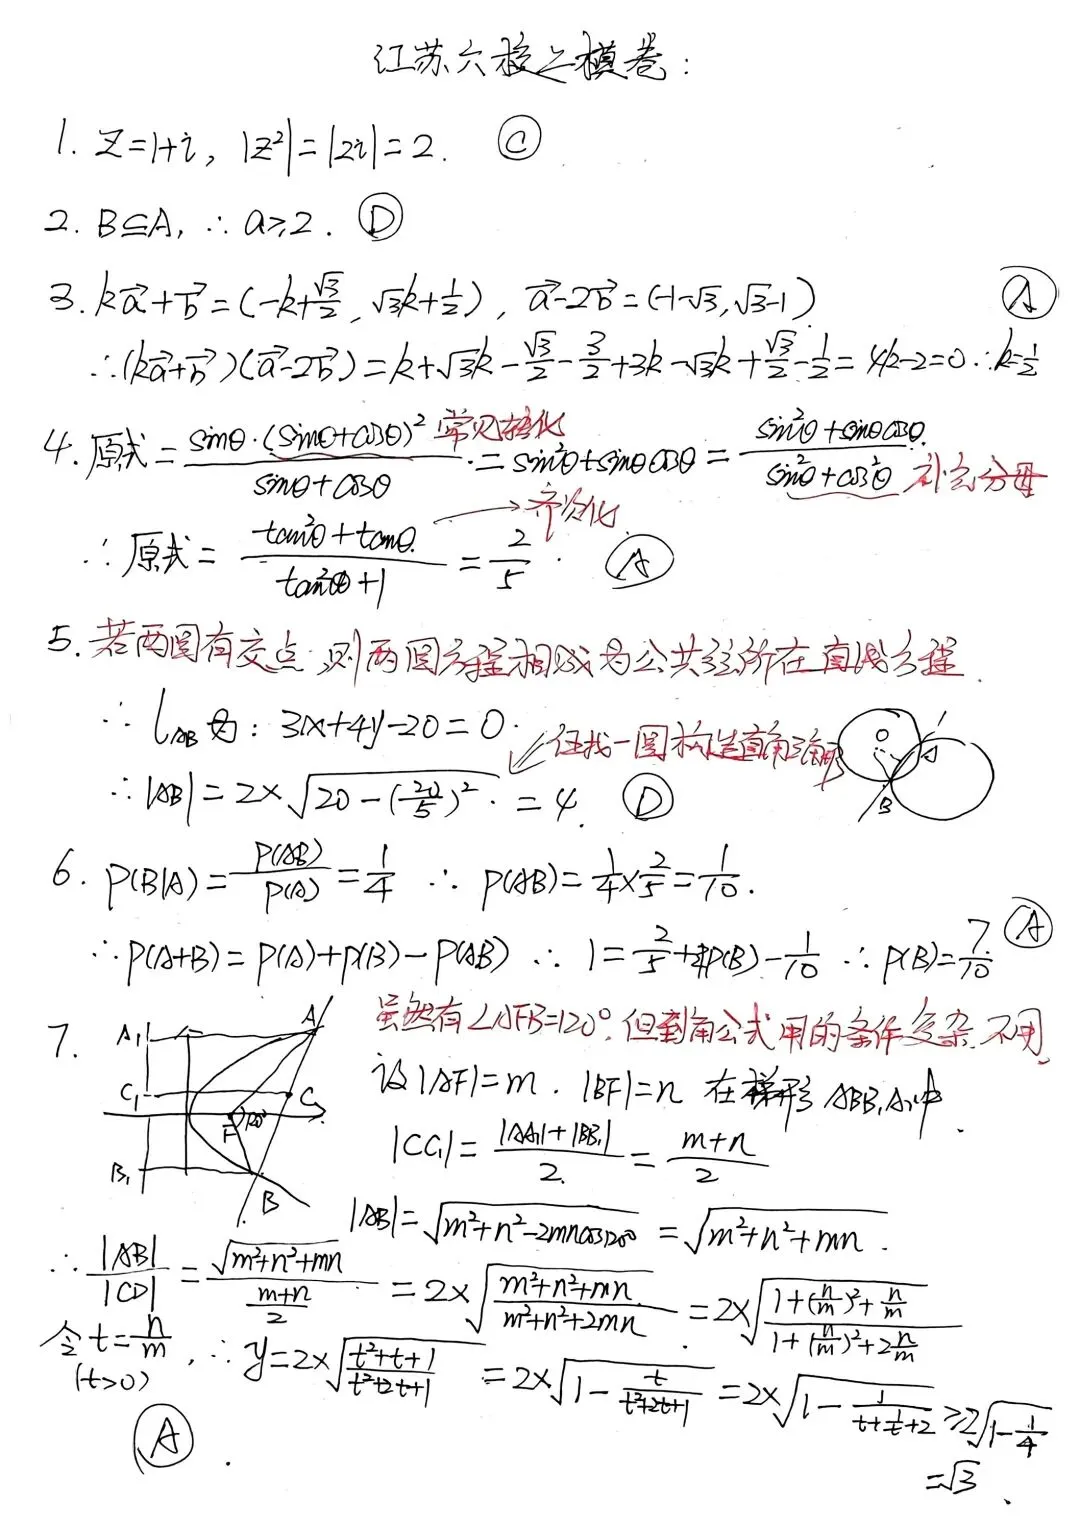 江苏六校之模卷:
1. Z=1+i, |Z²|=|2i|=2. Ⓒ
2. B⊆A, ∴ a≥2. Ⓓ
3. ka⃗+b⃗=(-k+√3/2, √3k+1/2), a⃗-2b⃗=(-1-√3,√3-1) Ⓐ
∴(ka⃗+b⃗)(a⃗-2b⃗)=k+√3k-√3/2-3/2+3k-√3k+√3/2-1/2=4k-2=0 ∴k=1/2
4. 原式=sinθ·(sinθ+cosθ)²/(sinθ+cosθ) 常见转化 =sin²θ+sinθcosθ=(sin²θ+sinθcosθ)/(sin²θ+cos²θ) 补充分母
∴原式=(tan²θ+tanθ)/(tan²θ+1) → 齐次化 =2/5. Ⓐ
5. 若两圆有交点,则两圆方程相减为公共弦所在直线方程.
∴ l_AB为: 3x+4y-20=0.
任找一圆构造直角三角形
O A B
∴|AB|=2×√(20-(20/5)²)=4 Ⓓ
6. P(B|A)=P(AB)/P(A)=1/4 ∴ P(AB)=1/4×2/5=1/10.
∴P(A+B)=P(A)+P(B)-P(AB) ∴ 1=2/5+P(B)-1/10 ∴P(B)=7/10 Ⓐ
7.
A₁ A C₁ C F 120° B₁ B
虽然有∠AFB=120°,但到角公式用的条件复杂,不用.
设|AF|=m. |BF|=n 在梯形ABB₁A₁中.
|CC₁|=(|AA₁|+|BB₁|)/2=(m+n)/2
|AB|=√(m²+n²-2mncos120°)=√(m²+n²+mn).
∴|AB|/|CD|=√(m²+n²+mn)/((m+n)/2)=2×√((m²+n²+mn)/(m²+n²+2mn))=2×√((1+(n/m)²+n/m)/(1+(n/m)²+2n/m))
令t=n/m, ∴y=2×√((t²+t+1)/(t²+2t+1))=2×√(1-t/(t²+2t+1))=2×√(1-1/(t+1/t+2))≥2√(1-1/4)
(t>0)
=√3.
Ⓐ.